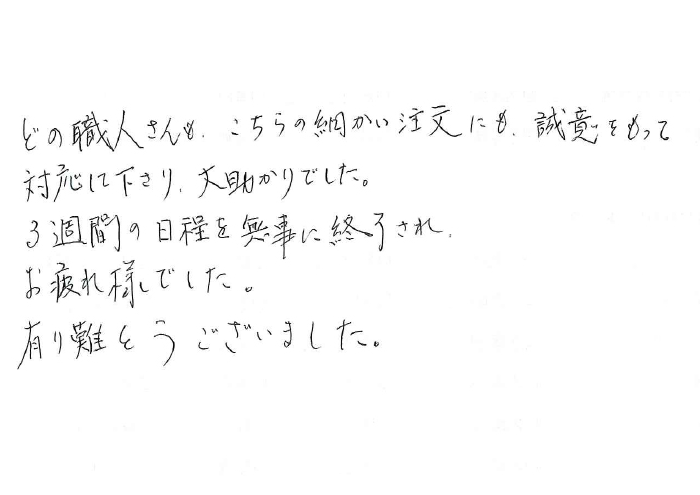 どの職人さんも、こちらの細かい注文にも、誠意をもって
対応して下さり、大助かりでした。
3週間の日程を無事に終了され、
お疲れ様でした。
有り難とうございました。